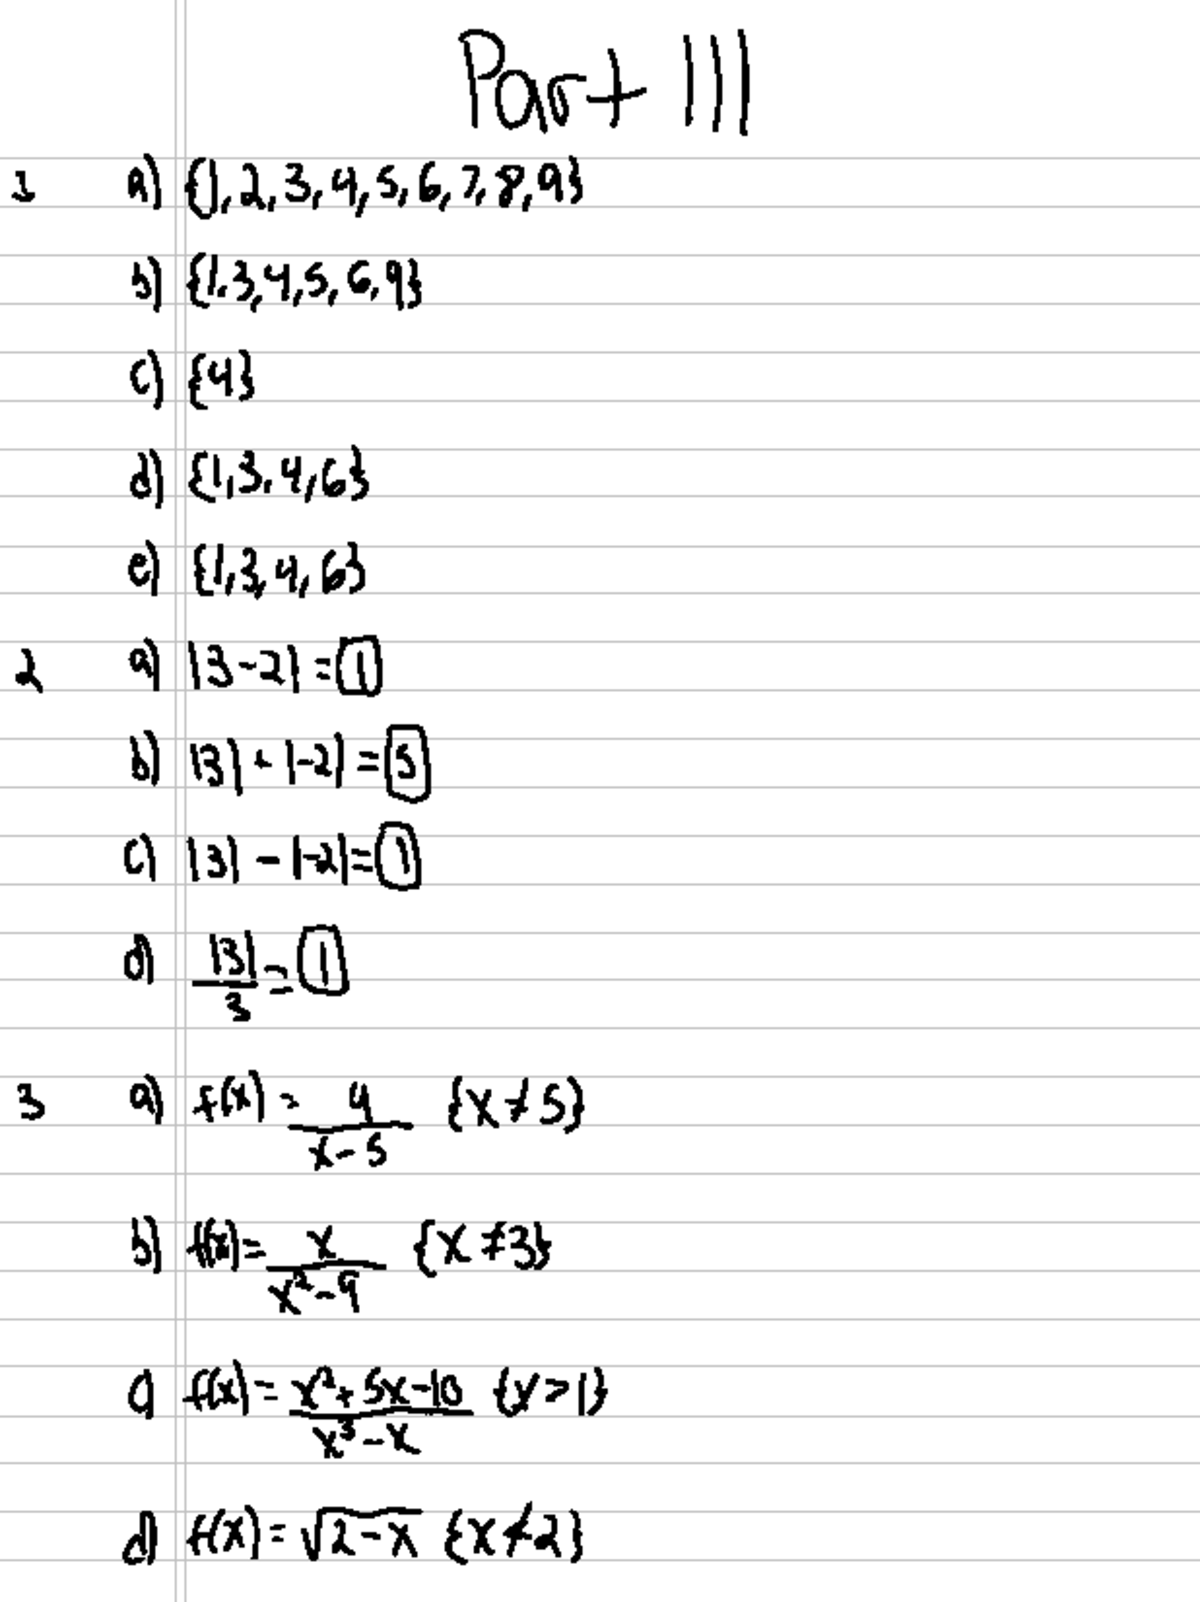 Part III
1 a) {1, 2, 3, 4, 5, 6, 7, 8, 9}
b) {1, 3, 4, 5, 6, 9}
c) {4}
d) {1, 3, 4, 6}
e) {1, 3, 4, 6}
2 a) |3-2| = 1
b) |3| + |-2| = 5
c) |3| - |-2| = 1
d) |3|/3 = 1
3 a) f(x) = 4/(x-5) {x≠5}
b) f(x) = x/(x²-9) {x≠3}
c) f(x) = (x²+5x-10)/(x³-x) {x>1}
d) f(x) = √(2-x) {x≮2}